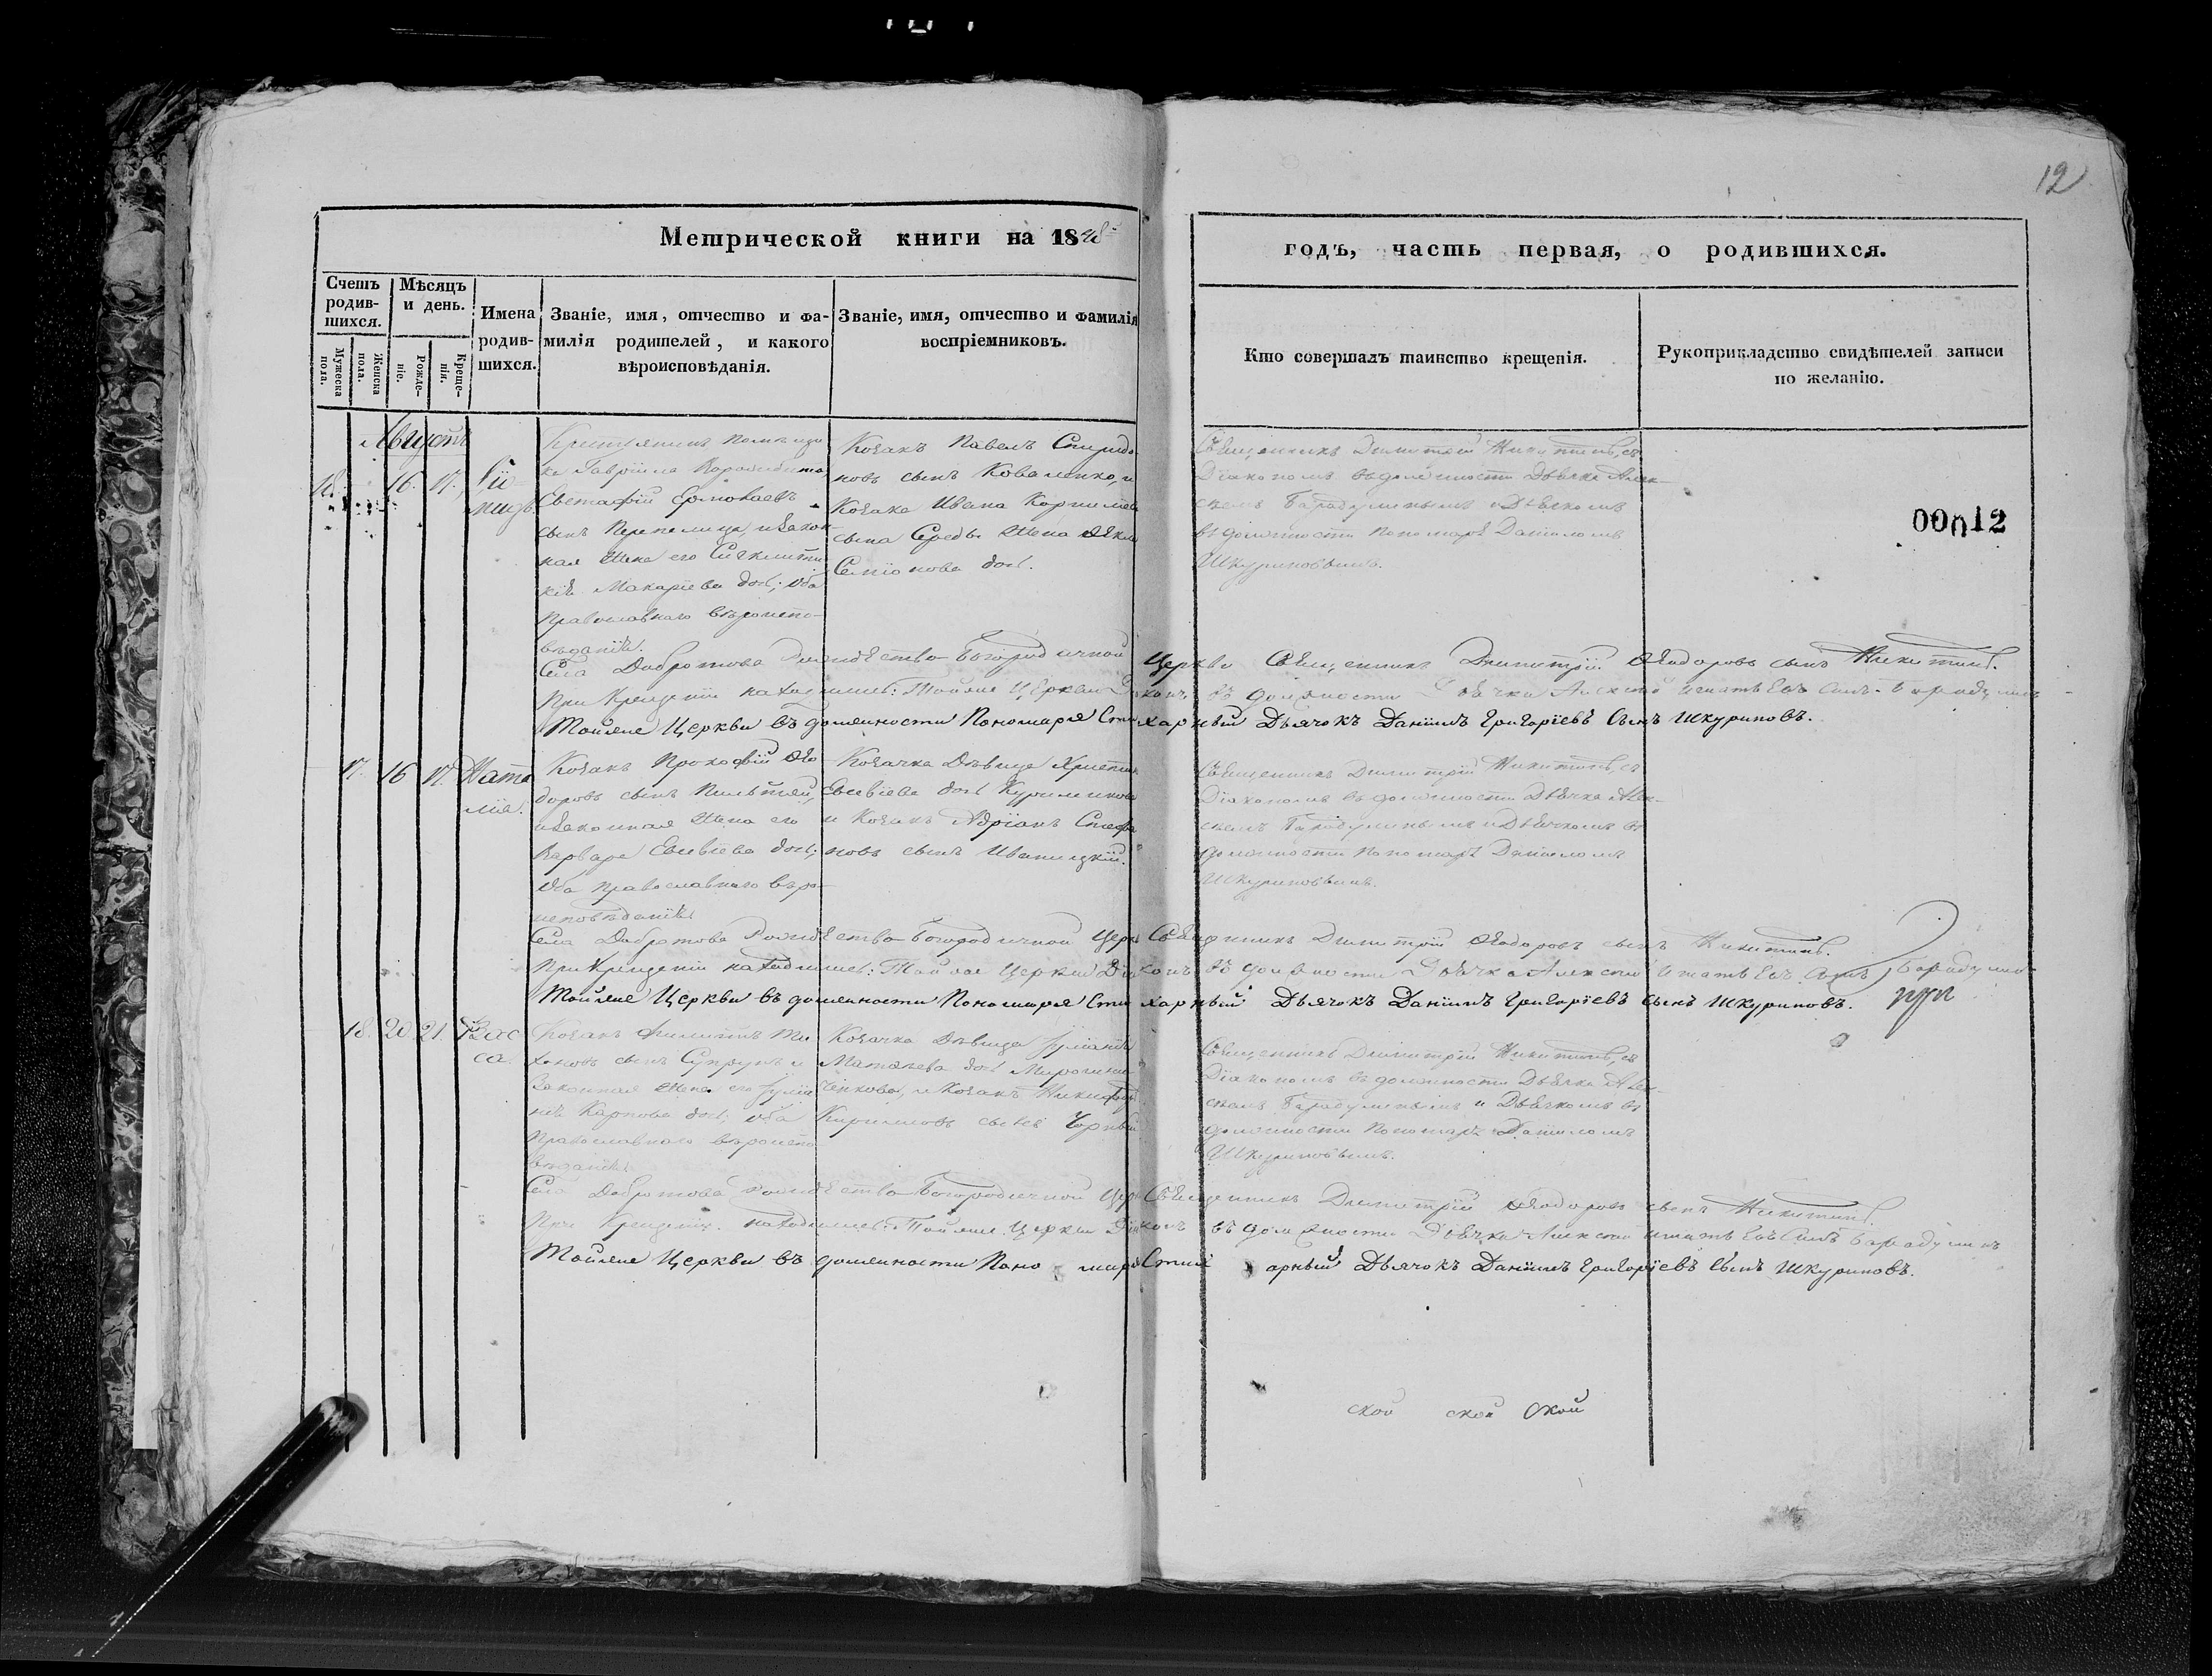 12
Метрической книги на 1848
годъ, часть первая, о родившихся.
Счетъ родив-шихся.
Мѣсяцъ и день.
Мужеска пола.
Женска пола.
Рожде-ніе.
Креще-нія.
Имена родив-шихся.
Званіе, имя, отчество и фа-
милія родителей, и какого
вѣроисповѣданія.
Званіе, имя, отчество и фамилія
воспріемниковъ.
Кто совершалъ таинство крещенія.
Рукоприкладство свидѣтелей записи
по желанію.
00012
Августъ
16. 17.
Козакъ Павелъ Спиридо
новъ сынъ Коваленко, и
Козака Ивана
сына Середы жена
Семіонова доч.
Гавріила
Евстафій
сынъ Перепелица, и закон-
ная жена его
Макаріева доч; оба
православнаго вѣроиспо-
вѣданія.
Священникъ Димитрій Никитинъ, съ
Діакономъ въ должности Дьячка Алек-
сѣемъ Барадулинымъ и Дьячкомъ
въ должности пономаря Даніиломъ
Шкуриновымъ.
Села Добротова Рождество-Богородичной Церкви Священникъ Димитрій Ѳеодоровъ сынъ Никитинъ.
При Крещеніи находились: Тойже Церкви Діаконъ въ должности Дьячка Алексѣй Игнатьевъ сынъ Барадулинъ
Тойже Церкви въ должности Пономаря Стихарный Дьячокъ Даніилъ Григоріевъ Сынъ Шкуриновъ.
17. 16 17. Ната
лія.
Козакъ Прокофій Ѳео
доровъ сынъ
и законная жена его
Варвара Евсевіева доч;
оба православнаго вѣро-
исповѣданія.
Козачка Дѣвица Христин
Евсевіева доч Куриликова
и Козакъ Адріанъ Стефа
новъ сынъ Иваницкій.
Священникъ Димитрій Никитинъ, съ
Діакономъ въ должности Дьячка Алек-
сѣемъ Барадулинымъ и Дьячкомъ въ
должности пономаря Даніиломъ
Шкуриновымъ.
Села Добротова Рождество-Богородичной Церк Священникъ Димитрій Ѳеодоровъ сынъ Никитинъ.
При Крещеніи находились: Тойже Церкви Діаконъ въ должности Дьячка Алексѣй Игнатьевъ Сынъ Барадулинъ
Тойже Церкви въ должности Пономаря Стихарный Дьячокъ Даніилъ Григоріевъ сынъ Шкуриновъ.
18. 20. 21. Васс
са.
Козакъ Филиппъ Ти
хоновъ сынъ Супрунъ и
Законная жена его Іуліа
Карпова доч, оба
Православнаго вѣроиспо
вѣданія.
Козачка Дѣвица Іуліанія
Матѳѣева доч
и Козакъ Никифоръ
Кирилловъ сынъ Чорный
Священникъ Димитрій Никитинъ, съ
Діакономъ въ должности Дьячка Алек-
сѣемъ Барадулинымъ и Дьячкомъ въ
должности пономаря Даніиломъ
Шкуриновымъ.
Села Добротова Рождество-Богородичной Церк Священникъ Димитрій Ѳеодоровъ сынъ Никитинъ.
При Крещеніи находились: Тойже Церкви Діаконъ въ должности Дьячка Алексѣй Игнатьевъ Сынъ Барадулинъ
Тойже Церкви въ должности Пономаря Стихарный Дьячокъ Даніилъ Григоріевъ Сынъ Шкуриновъ.
ской ской ской